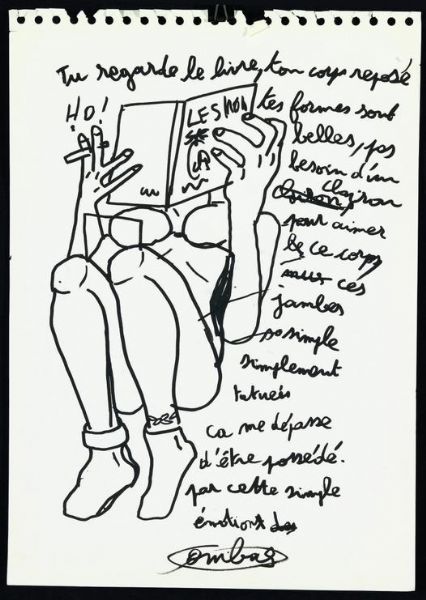 Tu regarde le livre, ton corps reposé
HO!
LES MOU
tes formes sont
belles, pas
besoin d'un
clairon
pour aimer
ce corps
ces
jambes
so simple
simplement
tatués
ca me dépasse
d'être possédé.
par cette simple
émotions des
ombas